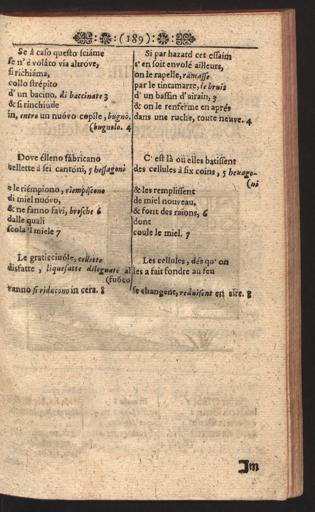 (189)
Se à caso questo sciáme
se n' è voláto via altróve,
si richiáma,
collo strépito
d' un bacino, di baccinate 3
& si rinchiude
in, entro un nuóvo copíle, bugnò,
(bugnolo. 4
Dove élleno fábricano
cellette à sei cantóni, 5 hessagoni
e le riémpiono, riempiscono
di miel nuóvo,
& ne fanno favi, bresche 6
dalle quali
scola 'l miele 7
Le graticciuóle, cellette
disfatte, liquefatte dileguate al
(fuóco
vanno si riducono in cera. 8
Si par hazard cet essaim
s' en soit envolé ailleurs,
on le rapelle, ramasse
par le tintamarre, le bruit
d' un bassin d'airain, 3
& on le renferme en aprés
dans une ruche, toute neuve. 4
C' est là où elles batissent
des cellules à six coins, 5 hexago-
(nes
& les remplissent
de miel nouveau,
& font des raions, 6
dont
coule le miel. 7
Les cellules, dés qu' on
les a fait fondre au feu
se changent, reduisent en cire. 8